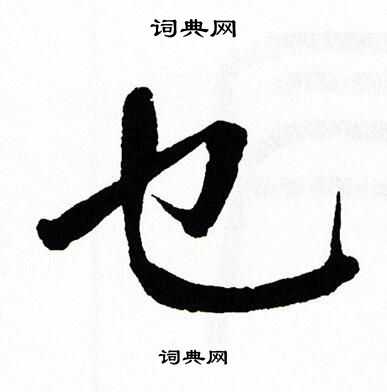 词典网
也
词典网